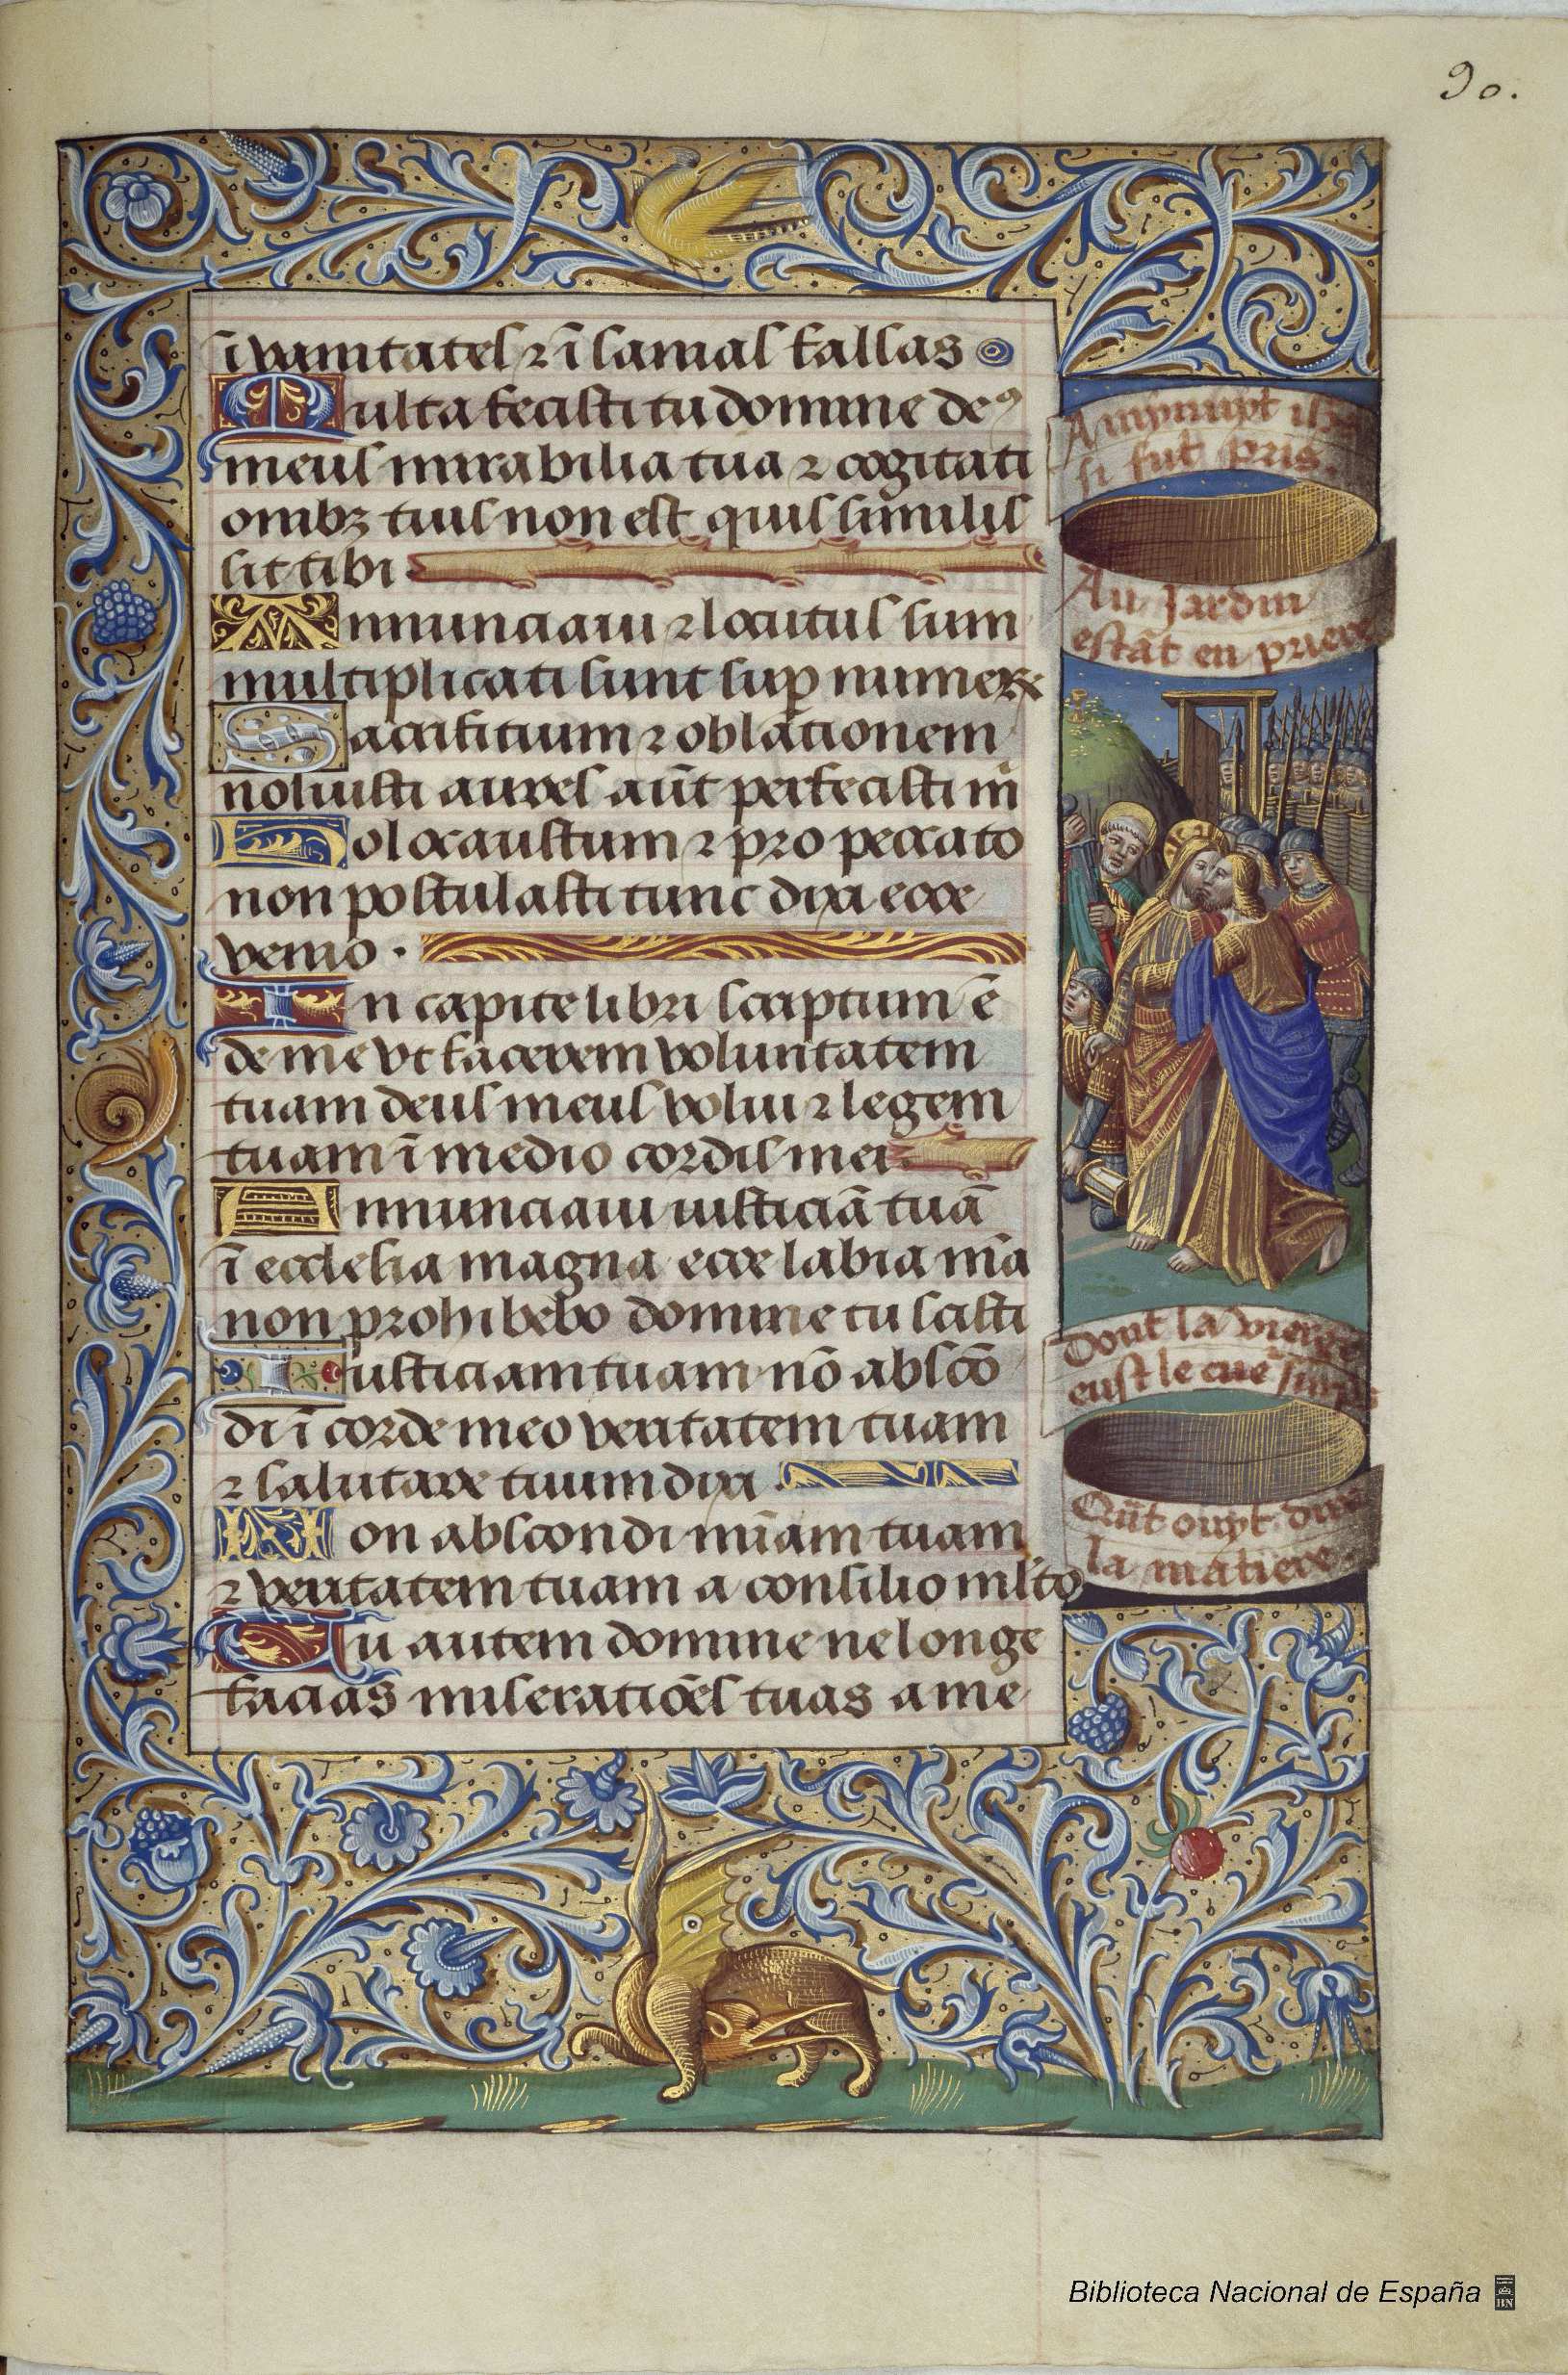 90.
ī vanitates ⁊ ī sanias falsas
Multa fecisti tu domine deꝰ
meus mirabilia tua ⁊ cogitati
onibꝫ tuis non est quis similis
sit tibi
Annunciavi ⁊ locutus sum
multiplicati sunt suꝑ numeꝝ
Sacrificium ⁊ oblationem
noluisti aures aūt perfecisti m̄
Holocaustum ⁊ pro peccato
non postulasti tunc dixi ecce
venio .
In capite libri scriptum ē
de me vt facerem voluntatem
tuam deus meus volui ⁊ legem
tuam ī medio cordis mei.
Annunciavi iusticiā tuā
ī ecclesia magna ecce labia m̄a
non prohibebo domine tu scisti
Iusticiam tuam nō abscō
di ī corde meo veritatem tuam
⁊ salutare tuum dixi .
Non abscondi mīam tuam
⁊ veritatem tuam a consilio mlto
Tu autem domine ne longe
facias miseratiōes tuas a me
A mynuyt
si fut pris.
Au Jardin
estāt en priere
Dont la vierge
eust le cue
Qūt ouyt dire
la matiere.
Biblioteca Nacional de España
BN